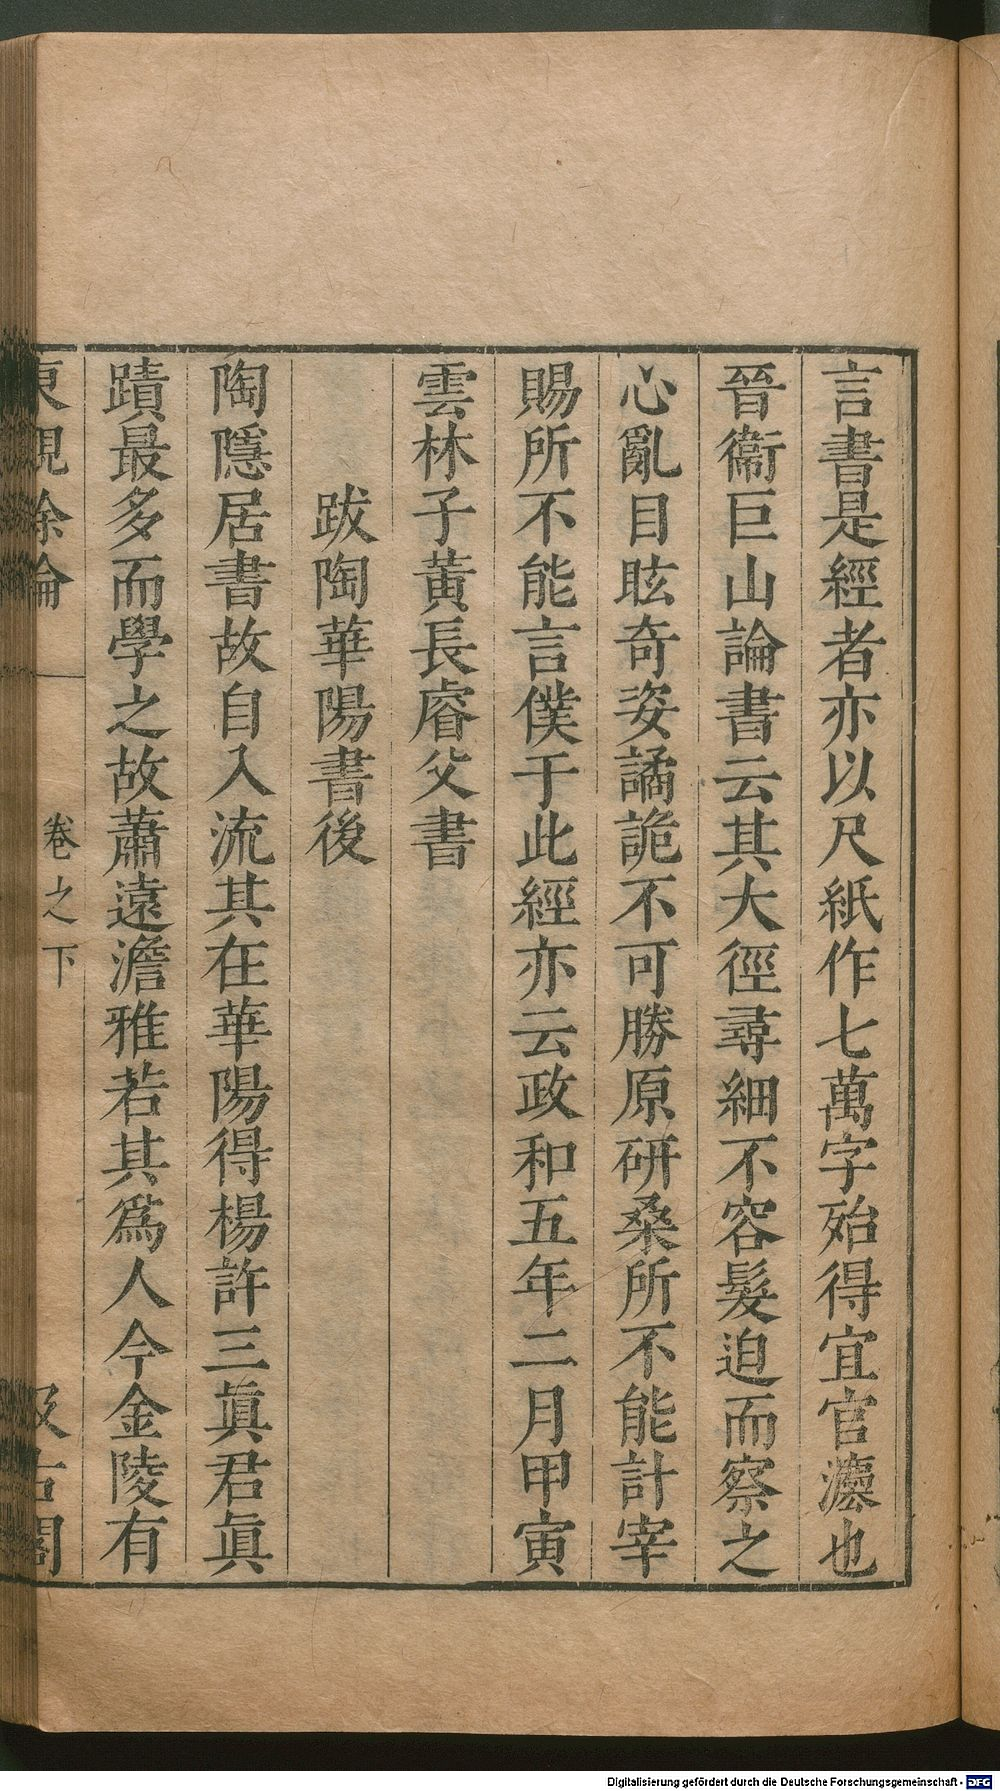 言書是經者亦以尺紙作七萬字殆得宜官灋也
晉衞巨山論書云其大徑尋細不容髮迫而察之
心亂目眩奇姿譎詭不可勝原研桑所不能計宰
賜所不能言僕于此經亦云政和五年二月甲寅
雲林子黃長睿父書
跋陶華陽書後
陶隱居書故自入流其在華陽得楊許三眞君眞
蹟最多而學之故蕭遠澹雅若其爲人今金陵有
東觀餘論 卷之下 汲古閣
Digitalisierung gefördert durch die Deutsche Forschungsgemeinschaft - DFG